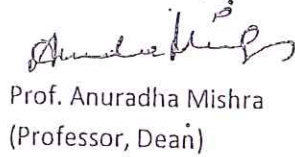 Prof. Anuradha Mishra
(Professor, Dean)